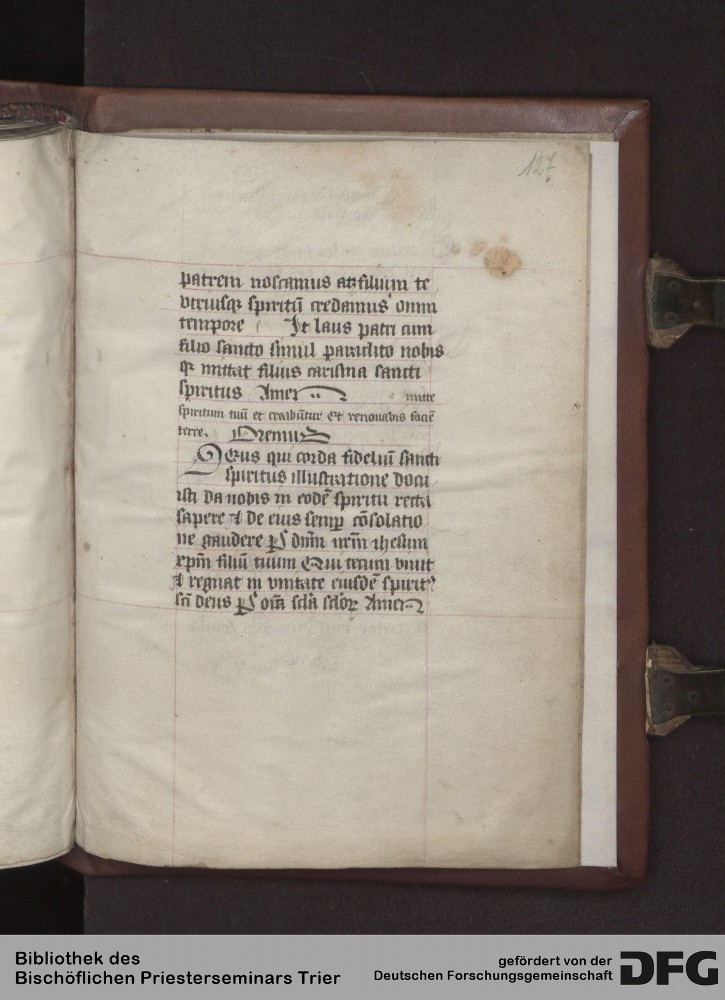 127
patrem noscamus atꝫ filium te
vtriusqꝫ spiritū credamus omni
tempore It laus patri cum
filio sancto simul paraclito nobis
qꝫ mittat filius carisma sancti
spiritus Amen mitte
spiritum tuū et creabūtur et renouabis faciē
terre. Oremus
Deus qui corda fideliū sancti
spiritus illustratione docu
isti da nobis in eodē spiritu recta
sapere & de eius semꝑ cōsolatio
ne gaudere ꝑ dn̄m nr̄m ihesum
xp̄m filiū tuum Qui tecum viuit
& regnat in vnitate eiusdē spirit⁹
sc̄i deus ꝑ om̄a sc̄la sc̄loꝝ Amen
Bibliothek des
Bischöflichen Priesterseminars Trier
gefördert von der
Deutschen Forschungsgemeinschaft DFG